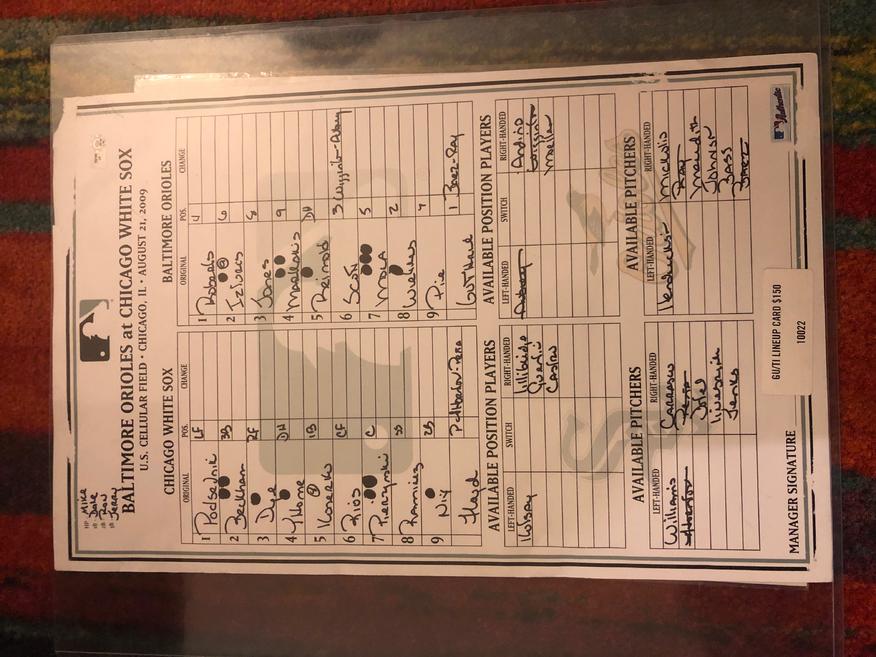 HP Mike
1B Dale
2B Ron
3B Jerry
BALTIMORE ORIOLES at CHICAGO WHITE SOX
U.S. CELLULAR FIELD • CHICAGO, IL • AUGUST 21, 2009
CHICAGO WHITE SOX
ORIGINAL POS. CHANGE
1 Podsednik LF
2 Beckham 3B
3 Dye RF
4 Thome DH
5 Konerko 1B
6 Rios CF
7 Pierzynski C
8 Ramirez SS
9 Nix 2B
Floyd P
BALTIMORE ORIOLES
ORIGINAL POS. CHANGE
1 Roberts 4
2 Izturis 6
3 Jones 8
4 Markakis 9
5 Reimold DH
6 Scott 3 Wigginton-Aubrey
7 Mora 5
8 Wieters 2
9 Pie 7
Guthrie 1 Baez-Ray
AVAILABLE POSITION PLAYERS
LEFT-HANDED SWITCH RIGHT-HANDED
Kotsay Lillibridge
Quentin
Castro
AVAILABLE POSITION PLAYERS
LEFT-HANDED SWITCH RIGHT-HANDED
Aubrey Andino
Wigginton
Moeller
AVAILABLE PITCHERS
LEFT-HANDED RIGHT-HANDED
Williams Carrasco
Thornton Pena
Linebrink
Jenks
AVAILABLE PITCHERS
LEFT-HANDED RIGHT-HANDED
Hendrickson Mickolio
Ray
Meredith
Johnson
Bass
Baez
MANAGER SIGNATURE
GU/TI LINEUP CARD $150
10022
Authentic